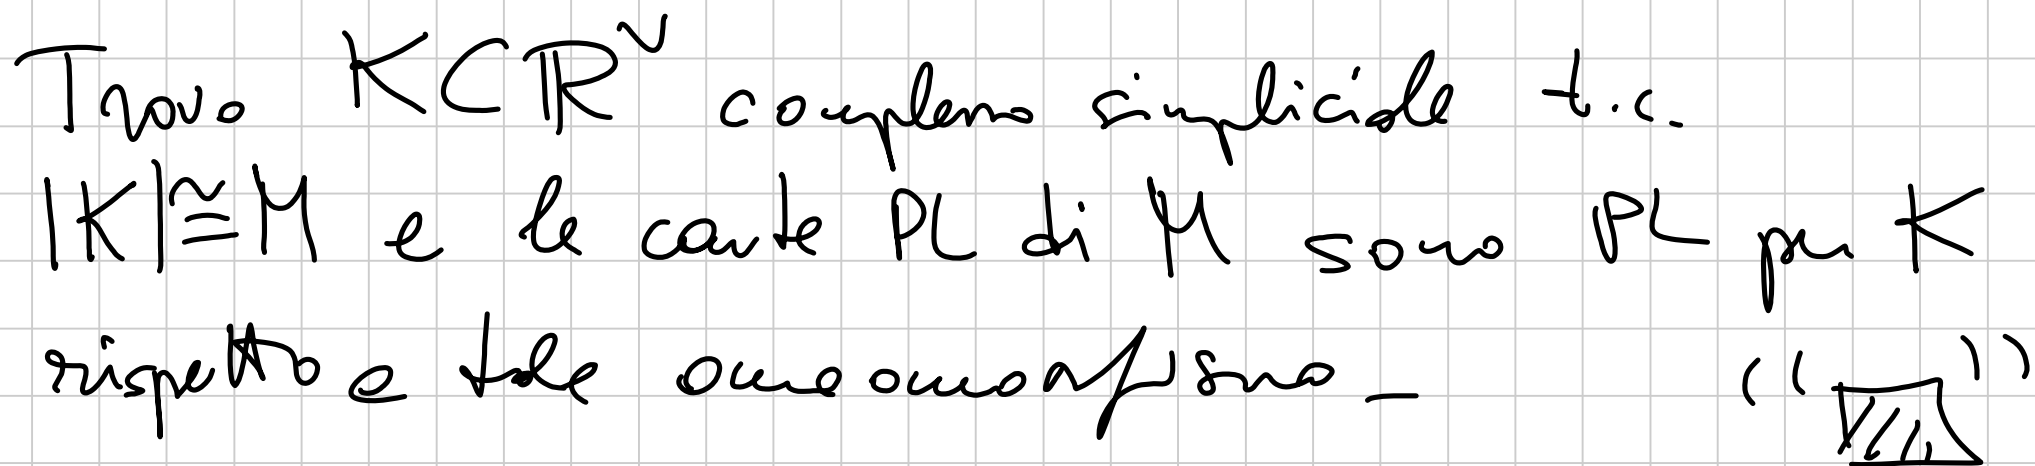 Trovo K⊂ℝᴺ complesso simpliciale t.c.
|K|≅M e le carte PL di M sono PL per K
rispetto a tale omeomorfismo_ (" ")